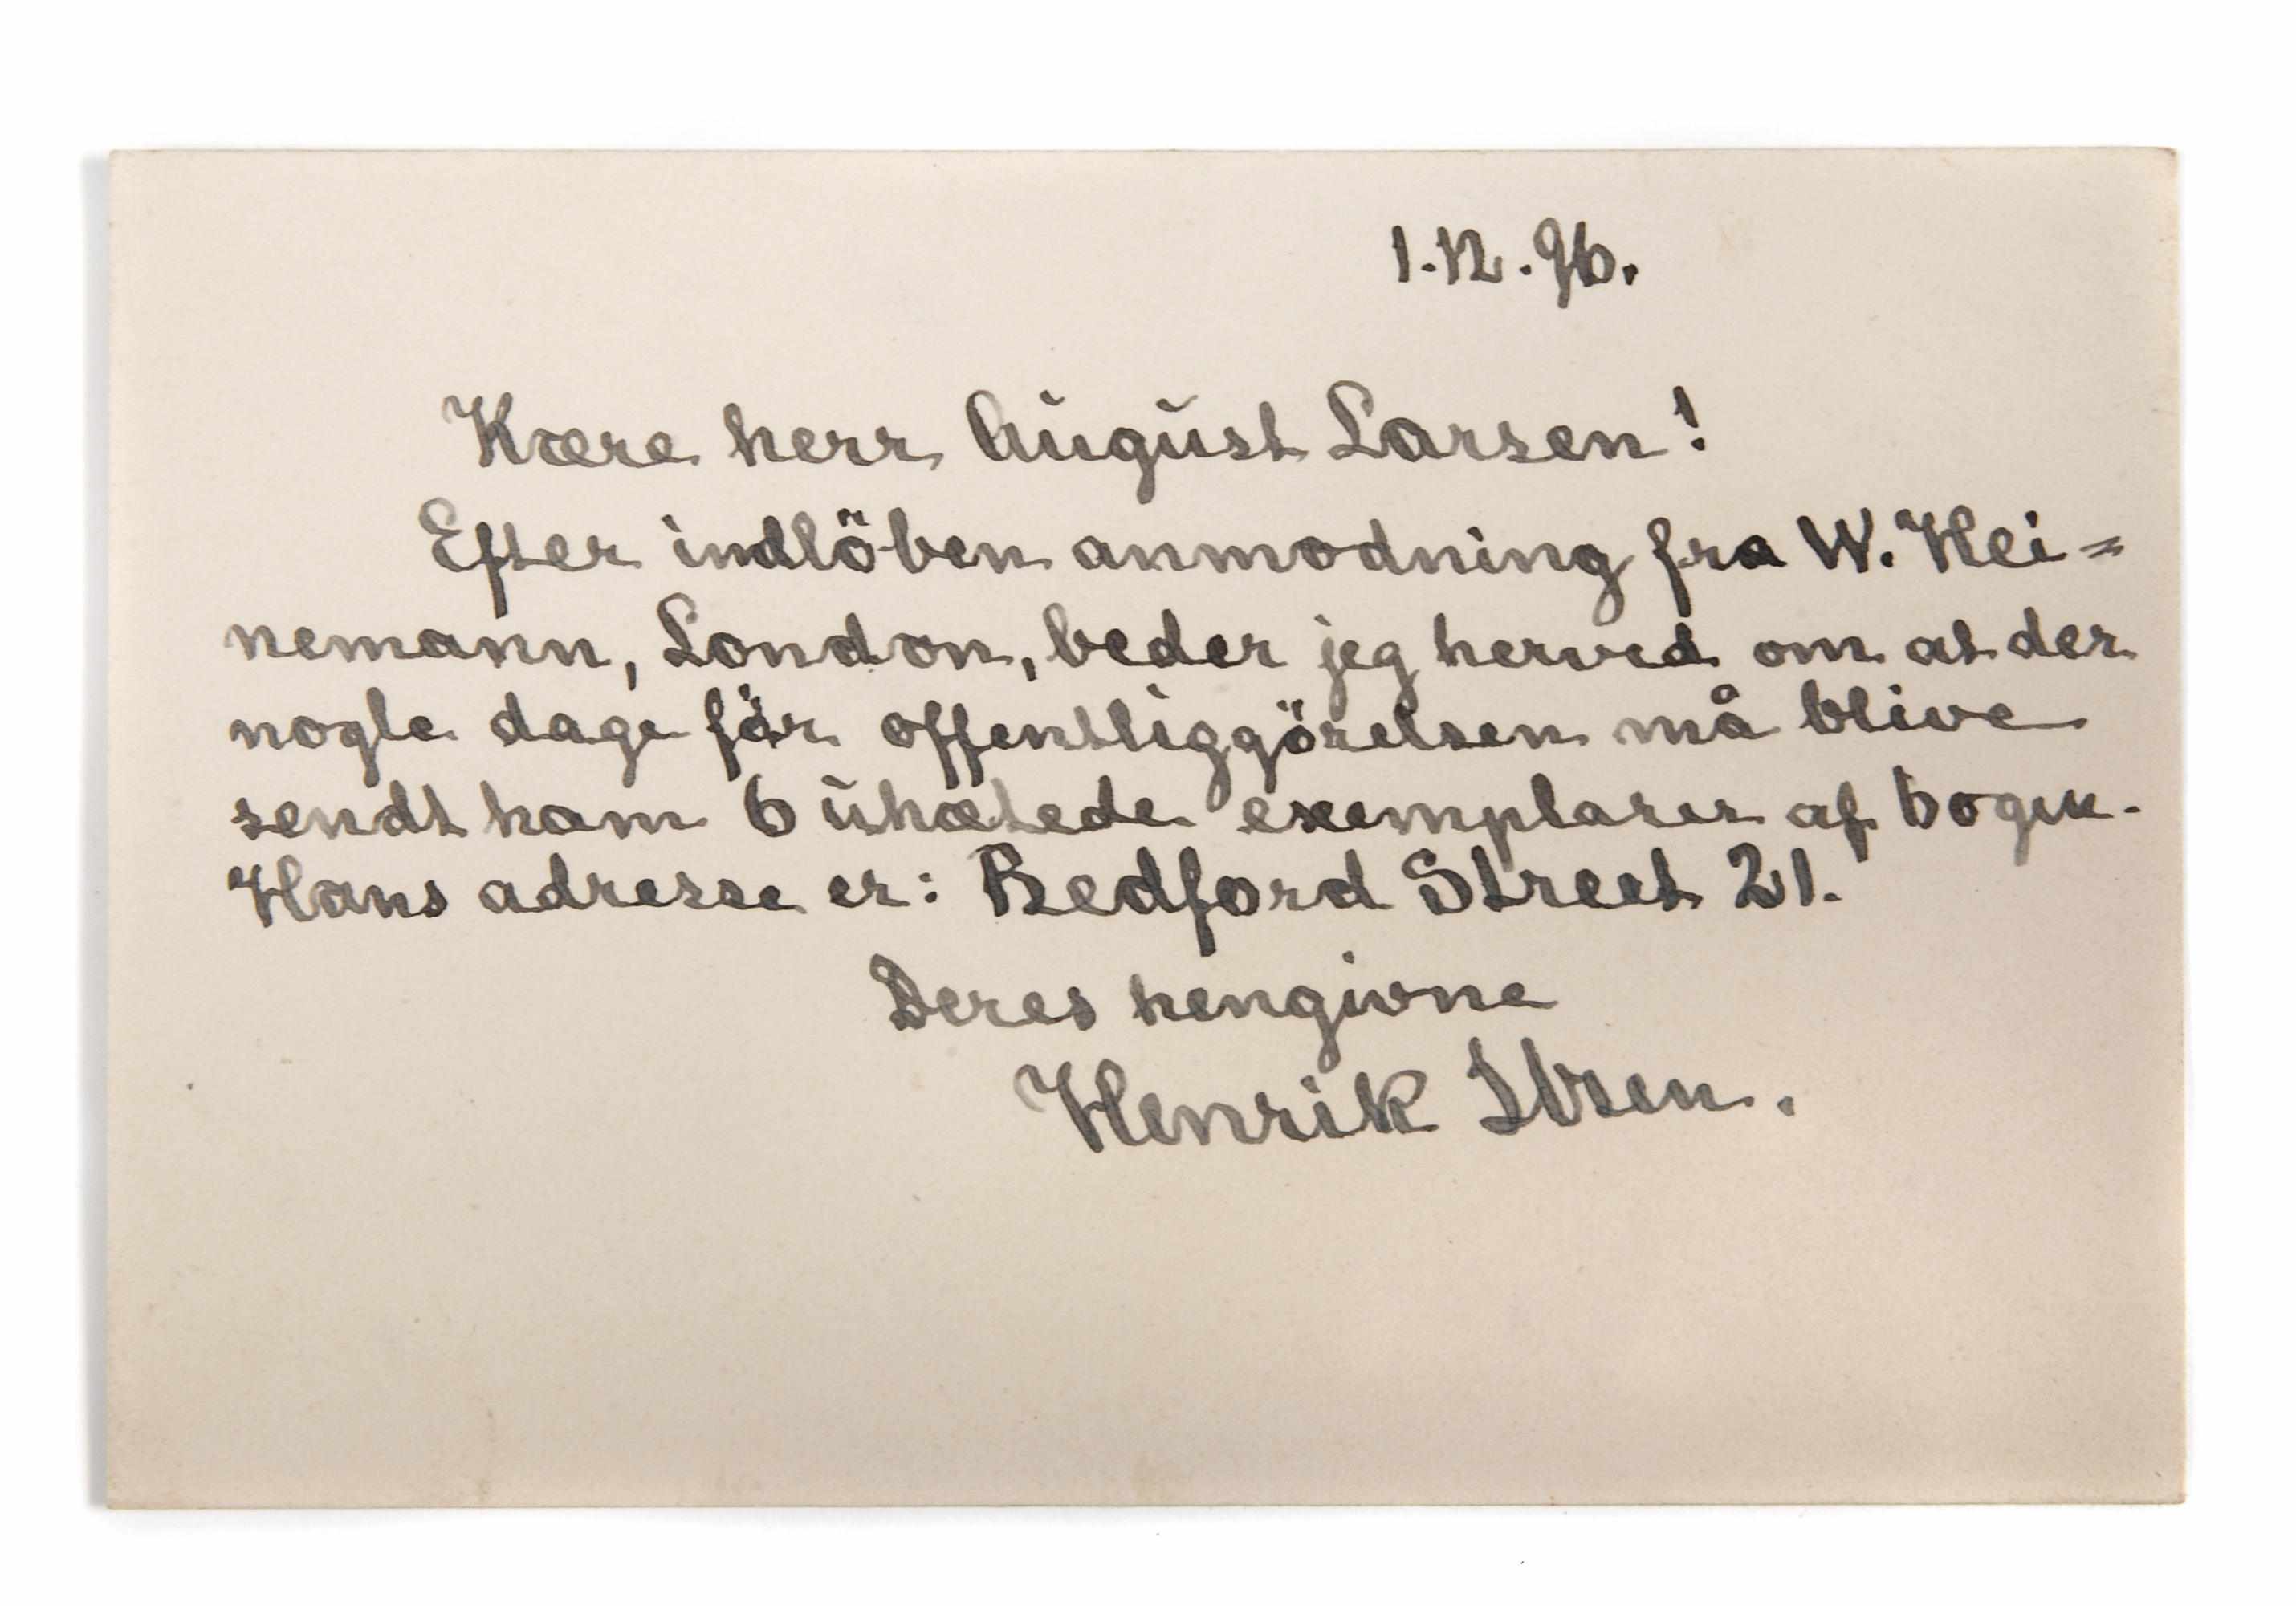 1.12.96.
Kære herr August Larsen!
Efter indlöben anmodning fra W. Hei=
nemann, London, beder jeg herved om at der
nogle dage för offentliggörelsen må blive
sendt ham 6 uhæftede exemplarer af bogen.
Hans adresse er: Bedford Street 21.
Deres hengivne
Henrik Ibsen.